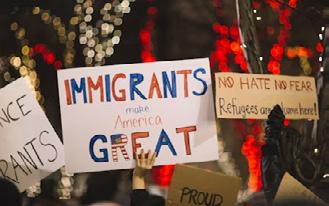 IMMIGRANTS
make
America
GREAT
NO HATE NO FEAR
Refugees are welcome here!
NCE
RANTS
PROUD